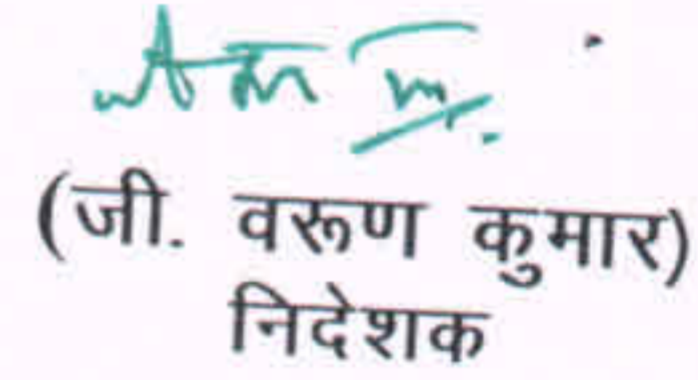 (जी. वरूण कुमार)
निदेशक